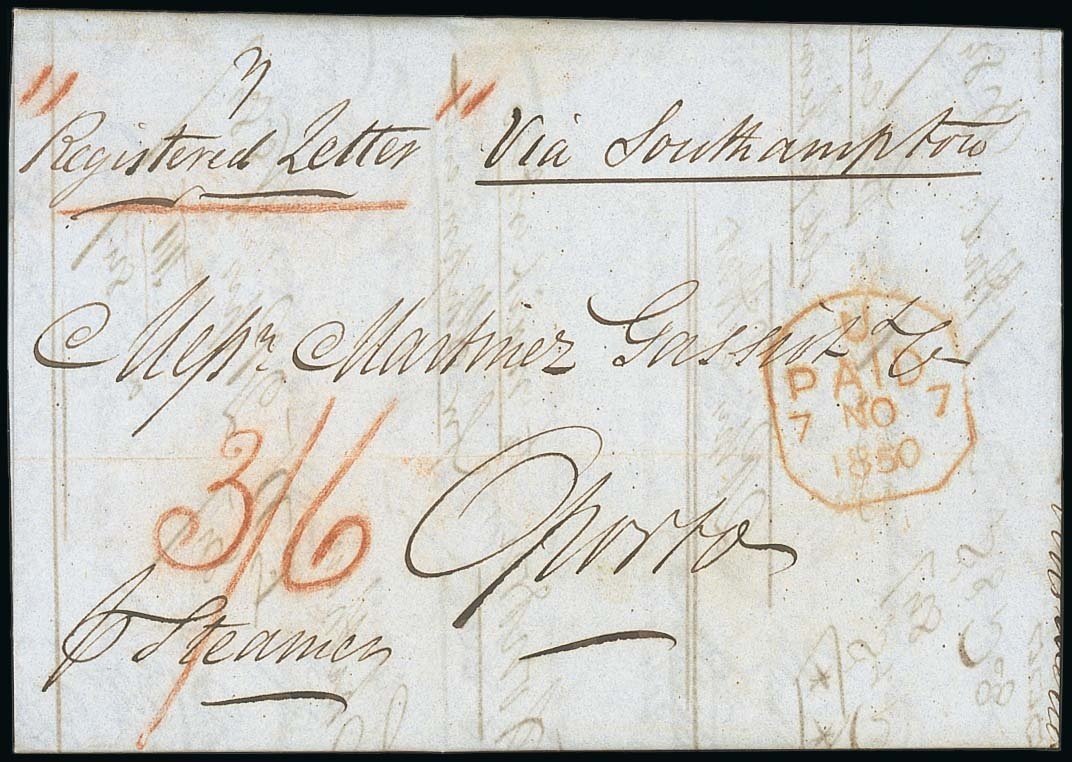 Registered Letter Via Southampton
Messrs. Martinez Gassiot & Co
U
PAID
7 NO 7
1850
3/6
Oporto
p Steamer